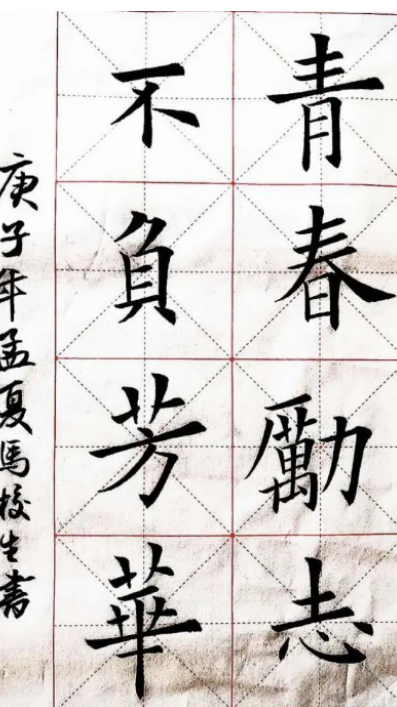 青春勵志
不負芳華
庚子年孟夏馬校生書